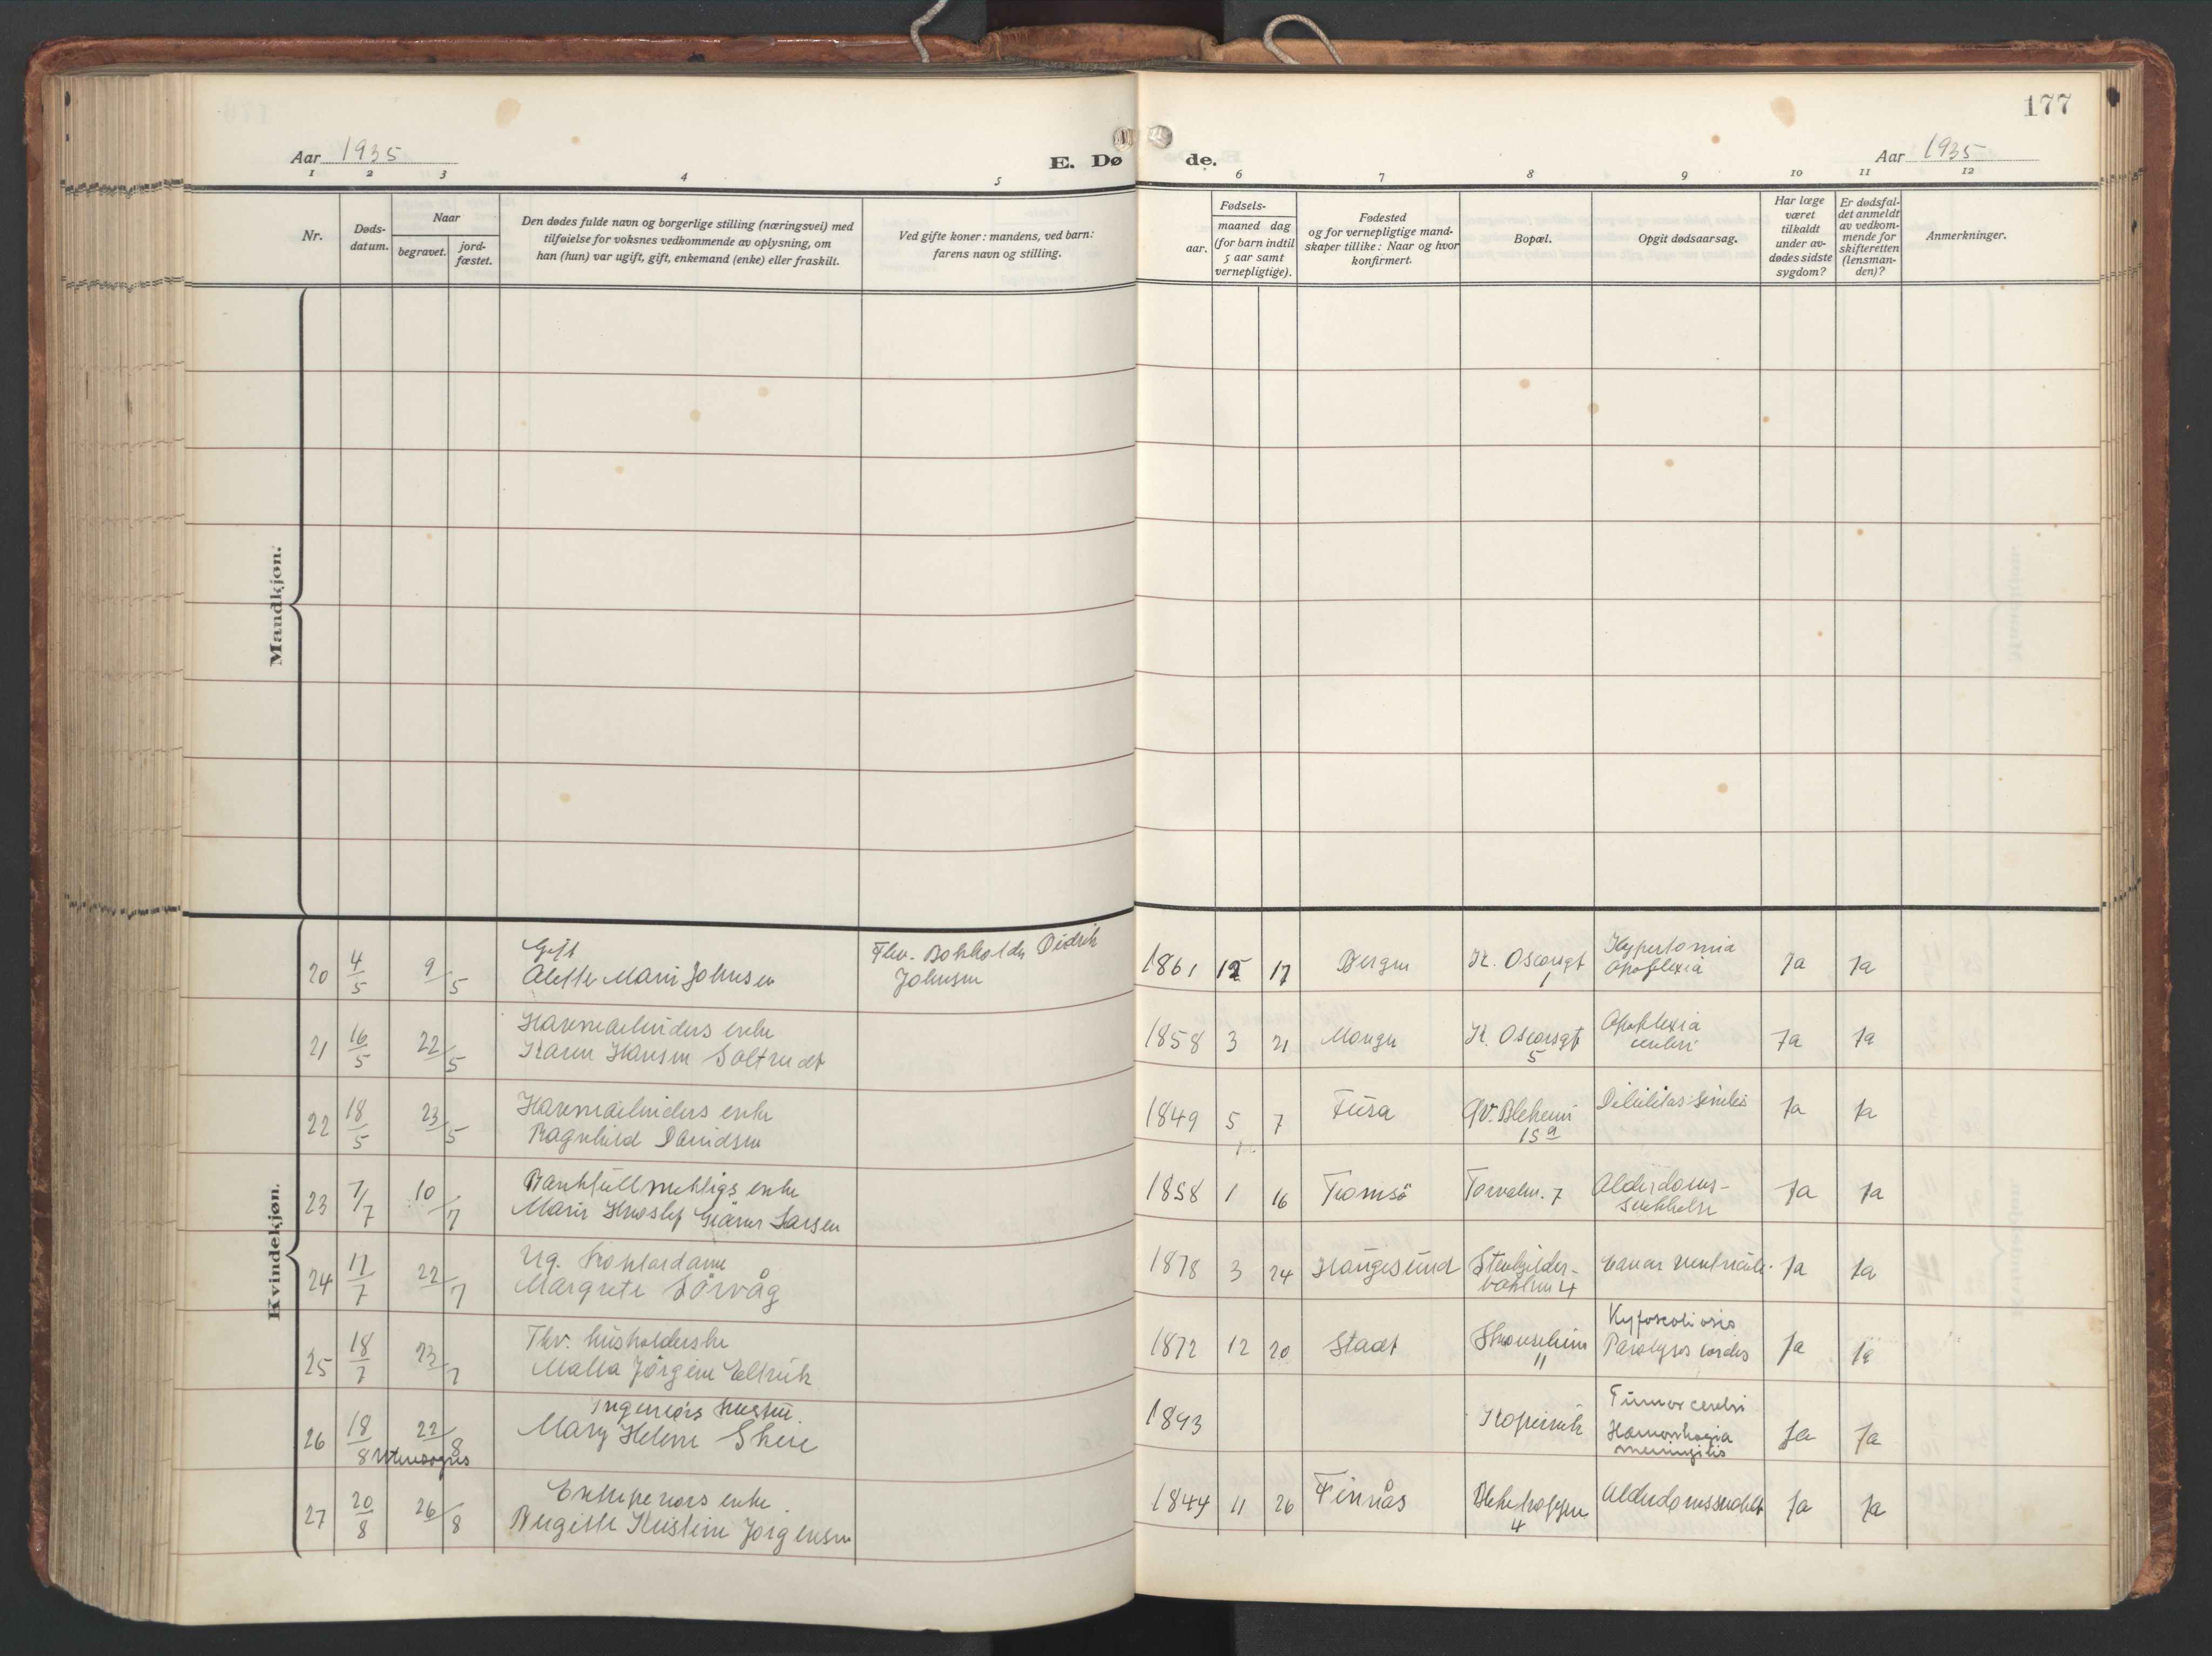 177
Aar 1935
E. Dø
de.
Aar 1935
1 2 3 4 5 6 7 8 9 10 11 12
Nr.
Døds-
datum.
Naar
begravet.
jord-
fæstet.
Den dødes fulde navn og borgerlige stilling (næringsvei) med
tilføielse for voksnes vedkommende av oplysning, om
han (hun) var ugift, gift, enkemand (enke) eller fraskilt.
Ved gifte koner: mandens, ved barn:
farens navn og stilling.
Fødsels-
aar.
maaned dag
(for barn indtil
5 aar samt
vernepligtige).
Fødested
og for vernepligtige mand-
skaper tillike: Naar og hvor
konfirmert.
Bopæl.
Opgit dødsaarsag.
Har læge
været
tilkaldt
under av-
dødes sidste
sygdom?
Er dødsfal-
det anmeldt
av vedkom-
mende for
skifteretten
(lensman-
den)?
Anmerkninger.
Mandkjøn.
Kvindekjøn.
20 4/5 9/5
Gift
Alette Marie Johnsen
Fhv. Bokholder Didrik
Johnsen
1861 12 17 Bergen
K. Oscarsgt
1
Hypertonia
Apoplexia
Ja Ja
21 16/5 22/5
Havnearbeiders enke
Karen Hansen Soltvedt
1858 3 21 Manger
K. Oscarsgt
5
Apoplexia
cerebri
Ja Ja
22 18/5 23/5
Havnearbeiders enke
Ragnhild Davidsen
1849 5 7 Fusa
15 a
Debilitas senilis
Ja Ja
23 7/7 10/7
Bankfullmektigs enke
Marie Larsen
1858 1 16 Tromsö
Torvalm. 7
Alderdoms-
svekkelse
Ja Ja
24 17/7 22/7
Ug. Kontordame
Margrete Sörvåg
1878 3 24 Haugesund
4
Cancer ventriculi.
Ja Ja
25 18/7 23/7
Fhv. husholderske
Malla Jörgine Eltvik
1872 12 20 Stadt
11
Kyfoscoliosis
Paralysis cordis
Ja Ja
26 18/8 22/8
Utenbygds
Ingeniørs hustru.
Mary Helene Skeie
1893
Kopervik
Tumor cerebri
Hæmorrhagia
meningitis
Ja Ja
27 20/8 26/8
Ekspeditörs enke.
Birgitte Kristine Jørgensen
1844 11 26 Finnås
Blekehaugen
4
Alderdomssvakhet
Ja Ja